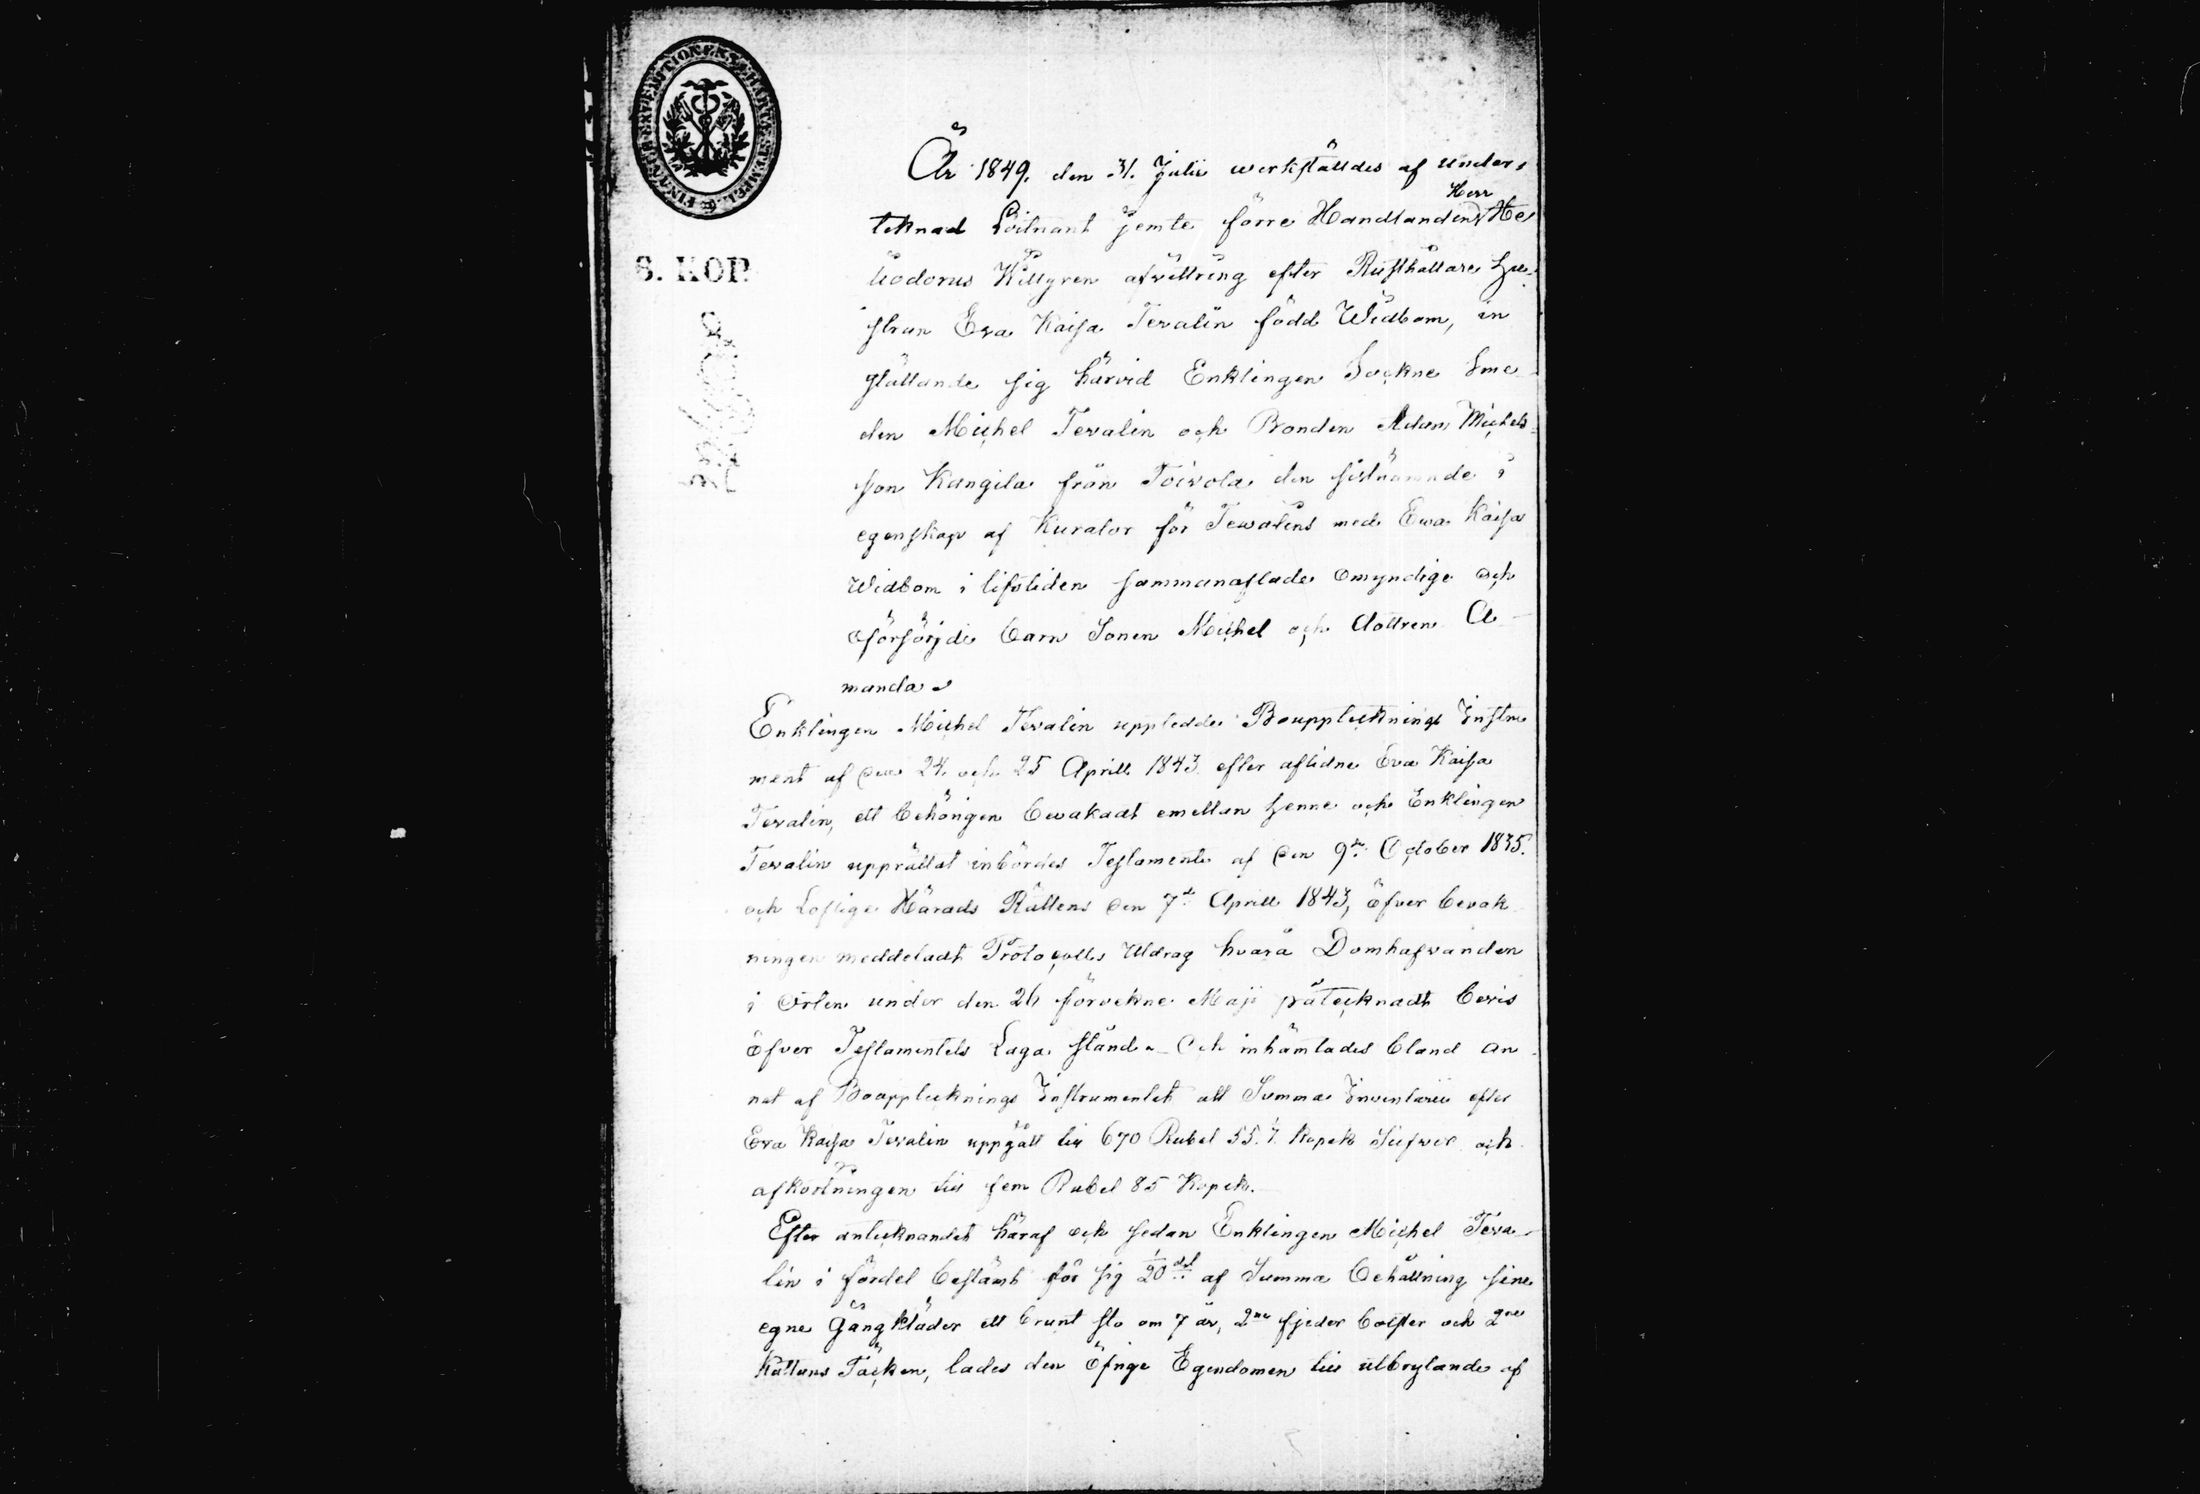 FINANCE EXPEDITIONENS CHARTÆ STEMPEL
6. KOP.
År 1849. den 31. Julii werkställdes af under,
teknad Löitnant jemte förre Handlanden Herr He,
liodorus Killgren afvittring efter Rusthållare Hu-
strun Eva Kaisa Tevalin född Widbom, in
ställande sig härvid Enklingen Sockne Sme-
den Michel Tevalin och Bonden Adam Michels-
son Kangila från Toivola den sistnämnde i
egenskap af Kurator för Tewalins med Ewa Kaisa
Widbom i lifstiden sammanaflade omyndige och
oförsörjde barn Sonen Michel och dottren A-
manda.
Enklingen Michel Tevalin uppledde Boupptecknings Instru
ment af den 24. och 25 Aprill 1843 efter aflidne Eva Kaisa
Tevalin, ett behörigen bewakadt emellan henne och Enklingen
Tevalin upprättat inbördes Testamente af den 9de October 1835.
och Loflige Härads Rättens den 7de Aprill 1843, öfver bevak
ningen meddeladt Protocolls Utdrag hvarå Domhafvanden
i Orten under den 26 förvekne Maji påtecknadt bevis
öfver Testamentets Laga stånd. Och inhämtades bland an
nat af Bouppteknings Instrumentet att Summa Inventarii efter
Eva Kaisa Tevalin uppgått till 670 Rubel 55. Kopek Silfver och
afkortningen till fem Rubel 85 Kopek.
Efter antecknandet häraf och sedan Enklingen Michel Teva-
lin i fördel bestämt för sig 1/20 del af Summa behållning sine
egne Gångkläder ett brunt sto om 7 år, 2ne fjeder bolster och 2ne
Kattuns Täcken, lades den öfrige Egendomen till utbrytande af